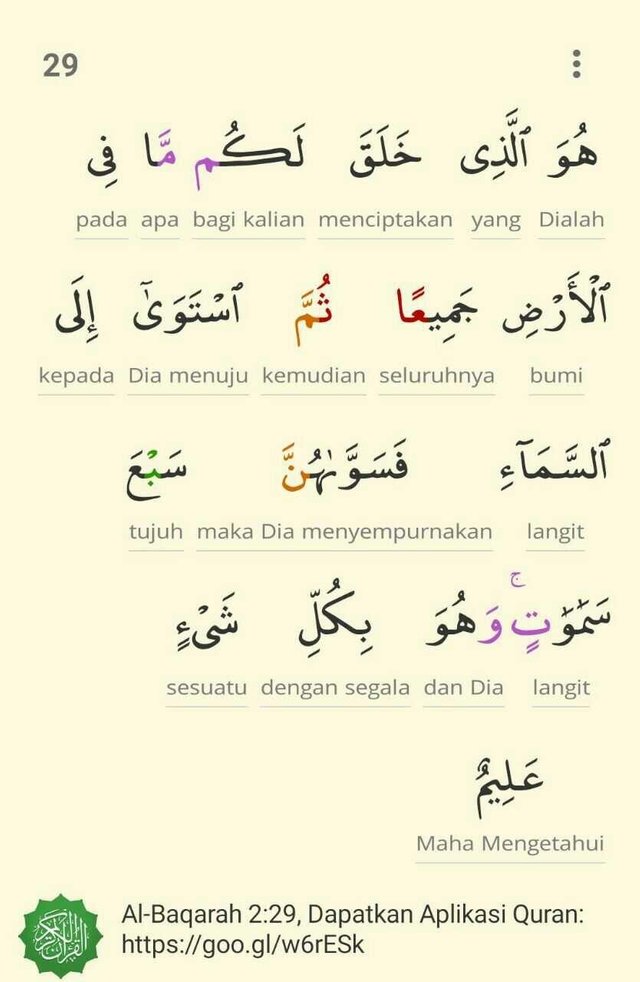 29
هُوَ ٱلَّذِى خَلَقَ لَكُم مَّا فِى
pada apa bagi kalian menciptakan yang Dialah
ٱلْأَرْضِ جَمِيعًا ثُمَّ ٱسْتَوَىٰٓ إِلَى
kepada Dia menuju kemudian seluruhnya bumi
ٱلسَّمَآءِ فَسَوَّىٰهُنَّ سَبْعَ
tujuh maka Dia menyempurnakan langit
سَمَٰوَٰتٍ ۚ وَهُوَ بِكُلِّ شَىْءٍ
sesuatu dengan segala dan Dia langit
عَلِيمٌ
Maha Mengetahui
Al-Baqarah 2:29, Dapatkan Aplikasi Quran:
https://goo.gl/w6rESk